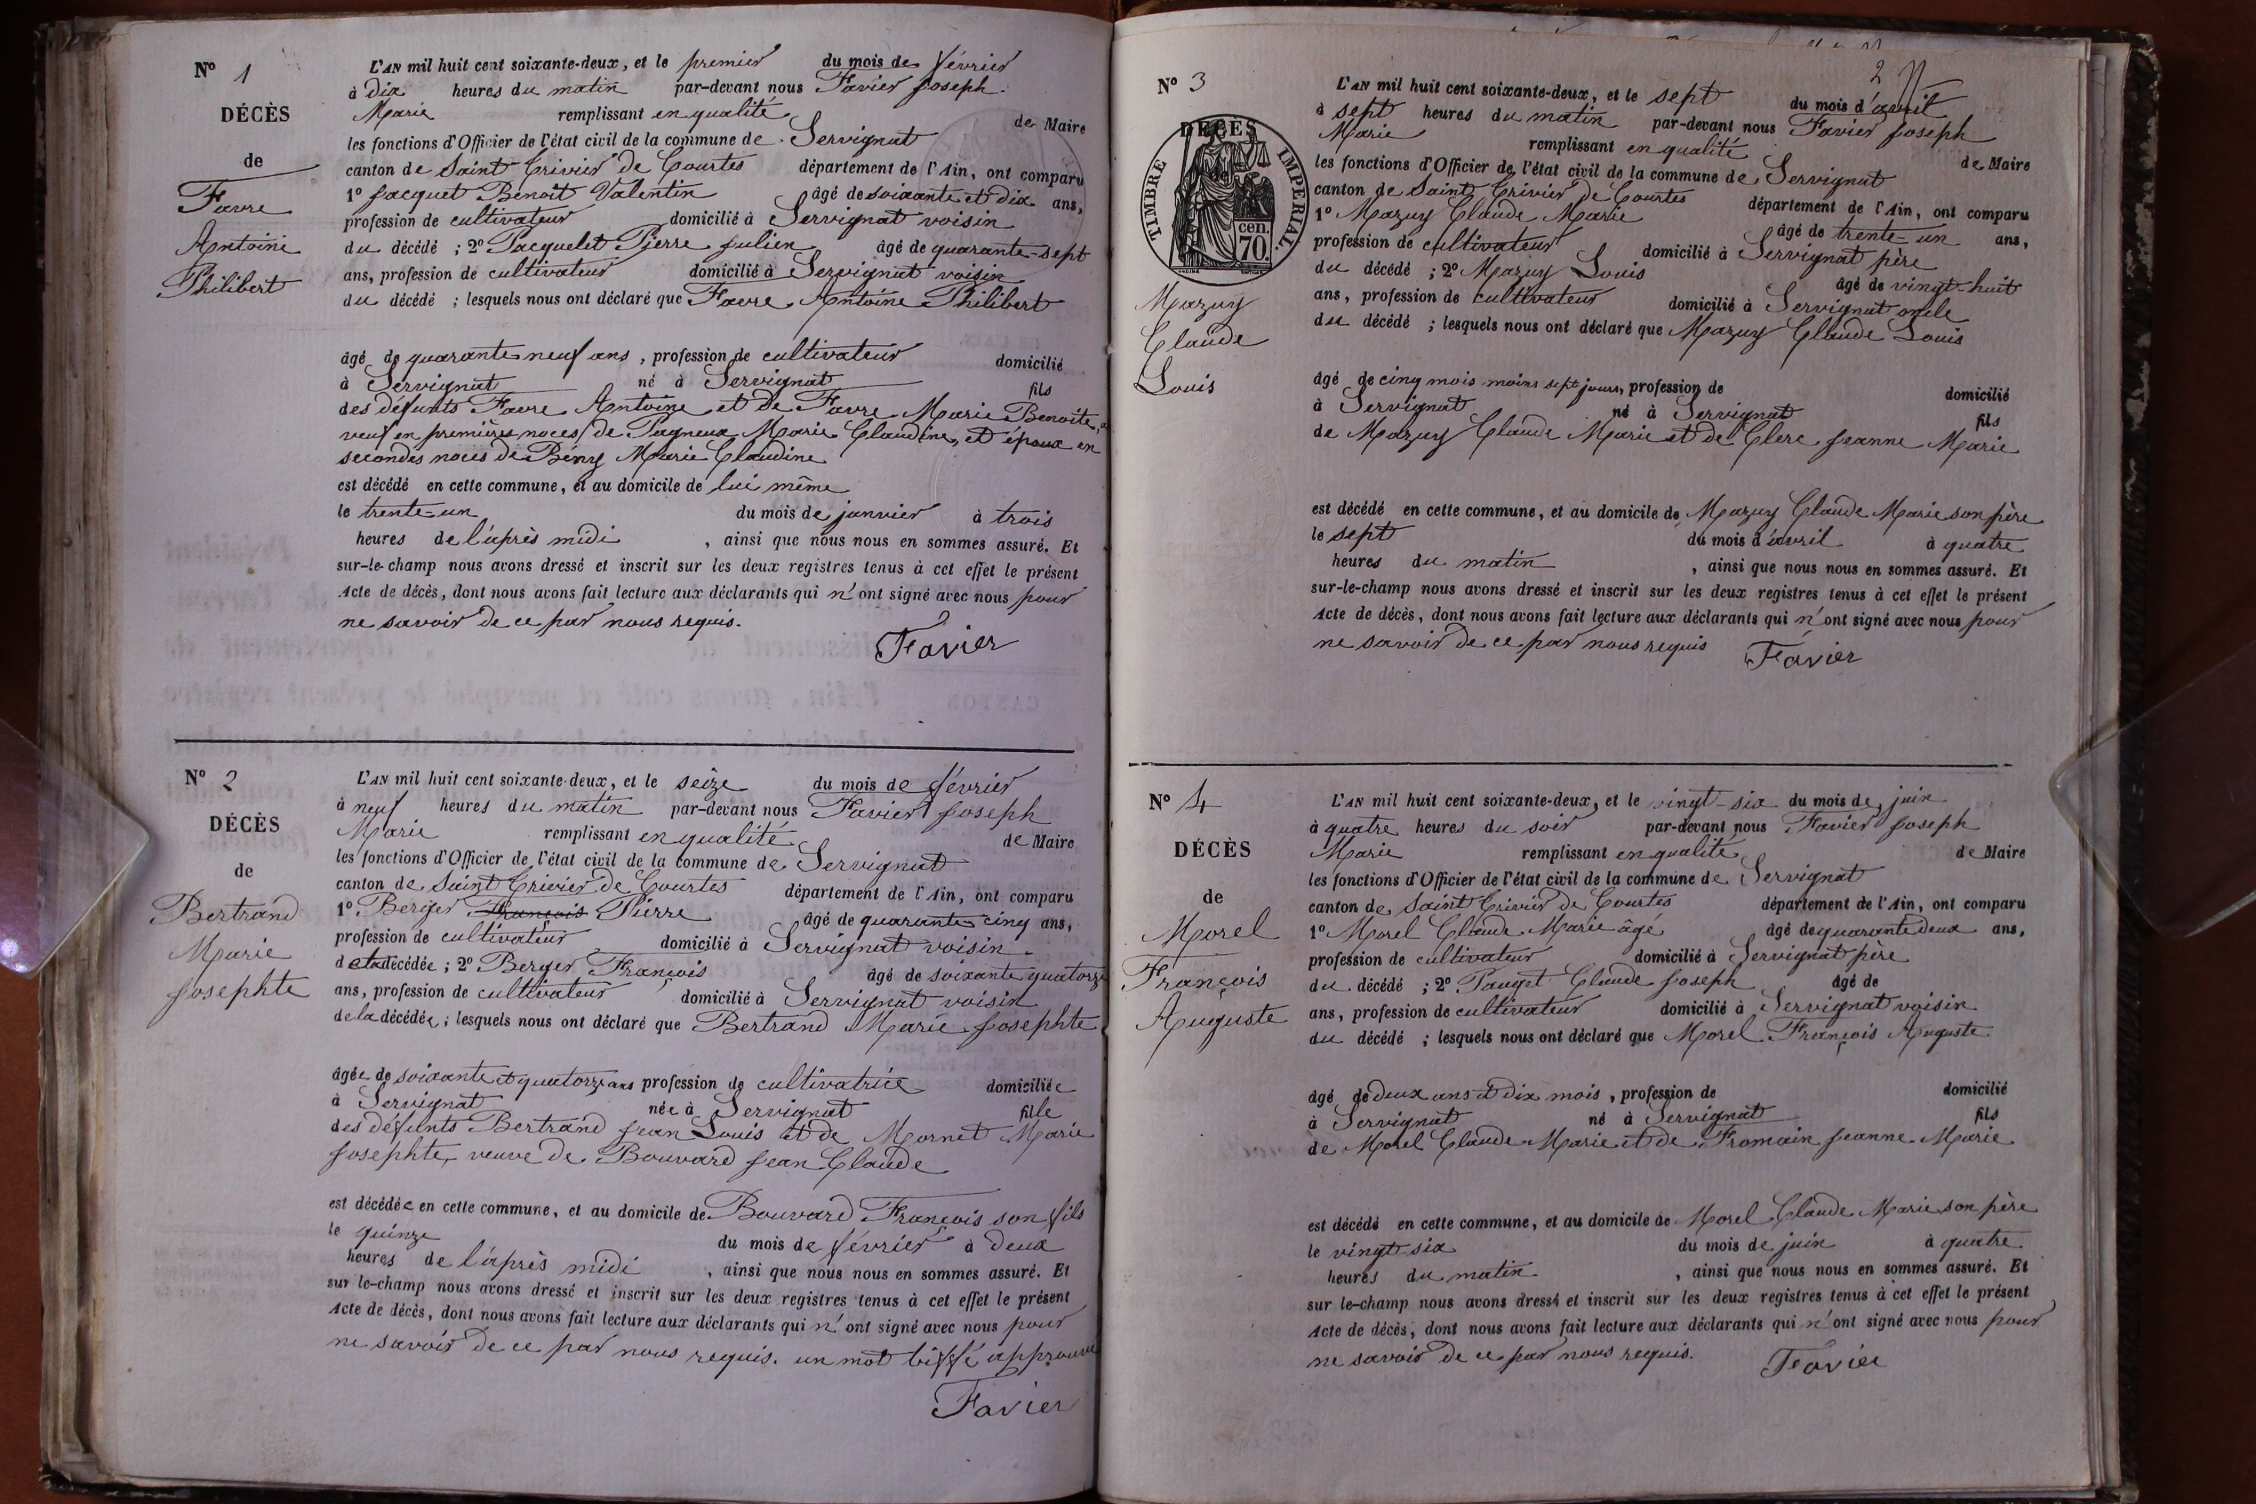 N° 1
DÉCÈS
de
Favre
Antoine
Philibert
L'AN mil huit cent soixante-deux, et le premier du mois de février
à dix heures du matin par-devant nous Favier Joseph
Marie remplissant en qualité de Maire
les fonctions d'Officier de l'état civil de la commune de Servignat
canton de Saint Trivier de Courtes département de l'Ain, ont comparu
1° Jacquet Benoit Valentin âgé de soixante et dix ans,
profession de cultivateur domicilié à Servignat voisin
du décédé ; 2° Pacquelet Pierre Julien âgé de quarante-sept
ans, profession de cultivateur domicilié à Servignat voisin
du décédé ; lesquels nous ont déclaré que Favre Antoine Philibert
âgé de quarante neuf ans, profession de cultivateur domicilié
à Servignat né à Servignat fils
des défunts Favre Antoine et de Favre Marie Benoite,
veuf en premières noces de Pagneux Marie Claudine, et époux en
secondes noces de Bény Marie Claudine
est décédé en cette commune, et au domicile de lui même
le trente-un du mois de janvier à trois
heures de l'après midi, ainsi que nous nous en sommes assuré. Et
sur-le-champ nous avons dressé et inscrit sur les deux registres tenus à cet effet le présent
Acte de décès, dont nous avons fait lecture aux déclarants qui n'ont signé avec nous pour
ne savoir de ce par nous requis.
Favier
N° 2
DÉCÈS
de
Bertrand
Marie
Josephte
L'AN mil huit cent soixante-deux, et le seize du mois de février
à neuf heures du matin par-devant nous Favier Joseph
Marie remplissant en qualité de Maire
les fonctions d'Officier de l'état civil de la commune de Servignat
canton de Saint Trivier de Courtes département de l'Ain, ont comparu
1° Berger François Pierre âgé de quarante cinq ans,
profession de cultivateur domicilié à Servignat voisin
de la décédée ; 2° Berger François âgé de soixante quatorze
ans, profession de cultivateur domicilié à Servignat voisin
de la décédée ; lesquels nous ont déclaré que Bertrand Marie Josephte
âgée de soixante et quatorze ans profession de cultivatrice domiciliée
à Servignat née à Servignat fille
des défunts Bertrand Jean Louis et de Mornet Marie
Joséphte, veuve de Bouvard Jean Claude
est décédée en cette commune, et au domicile de Bouvard François son fils
le quinze du mois de février à deux
heures de l'après midi, ainsi que nous nous en sommes assuré. Et
sur le-champ nous avons dressé et inscrit sur les deux registres tenus à cet effet le présent
Acte de décès, dont nous avons fait lecture aux déclarants qui n'ont signé avec nous pour
ne savoir de ce par nous requis. un mot biffé approuvé
Favier
2
N° 3
DÉCÈS
de
TIMBRE IMPÉRIAL.
cen.
70.
Mazuy
Claude
Louis
L'AN mil huit cent soixante-deux, et le sept du mois d'avril
à sept heures du matin par-devant nous Favier Joseph
Marie remplissant en qualité de Maire
les fonctions d'Officier de l'état civil de la commune de Servignat
canton de Saint Trivier de Courtes département de l'Ain, ont comparu
1° Mazuy Claude Marie âgé de trente-un ans,
profession de cultivateur domicilié à Servignat père
du décédé ; 2° Mazuy Louis âgé de vingt-huit
ans, profession de cultivateur domicilié à Servignat oncle
du décédé ; lesquels nous ont déclaré que Mazuy Claude Louis
âgé de cinq mois moins sept jours, profession de domicilié
à Servignat né à Servignat fils
de Mazuy Claude Marie et de Clerc Jeanne Marie
est décédé en cette commune, et au domicile de Mazuy Claude Marie son père
le sept du mois d'avril à quatre
heures du matin, ainsi que nous nous en sommes assuré. Et
sur-le-champ nous avons dressé et inscrit sur les deux registres tenus à cet effet le présent
Acte de décès, dont nous avons fait lecture aux déclarants qui n'ont signé avec nous pour
ne savoir de ce par nous requis
Favier
N° 4
DÉCÈS
de
Morel
François
Auguste
L'AN mil huit cent soixante-deux, et le vingt-six du mois de juin
à quatre heures du soir par-devant nous Favier Joseph
Marie remplissant en qualité de Maire
les fonctions d'Officier de l'état civil de la commune de Servignat
canton de Saint Trivier de Courtes département de l'Ain, ont comparu
1° Morel Claude Marie âgé âgé de quarante deux ans,
profession de cultivateur domicilié à Servignat père
du décédé ; 2° Pauget Claude Joseph âgé de
ans, profession de cultivateur domicilié à Servignat voisin
du décédé ; lesquels nous ont déclaré que Morel François Auguste
âgé de deux ans et dix mois, profession de domicilié
à Servignat né à Servignat fils
de Morel Claude Marie et de Fromain Jeanne Marie
est décédé en cette commune, et au domicile de Morel Claude Marie son père
le vingt six du mois de juin à quatre
heures du matin, ainsi que nous nous en sommes assuré. Et
sur le-champ nous avons dressé et inscrit sur les deux registres tenus à cet effet le présent
Acte de décès, dont nous avons fait lecture aux déclarants qui n'ont signé avec nous pour
ne savoir de ce par nous requis.
Favier